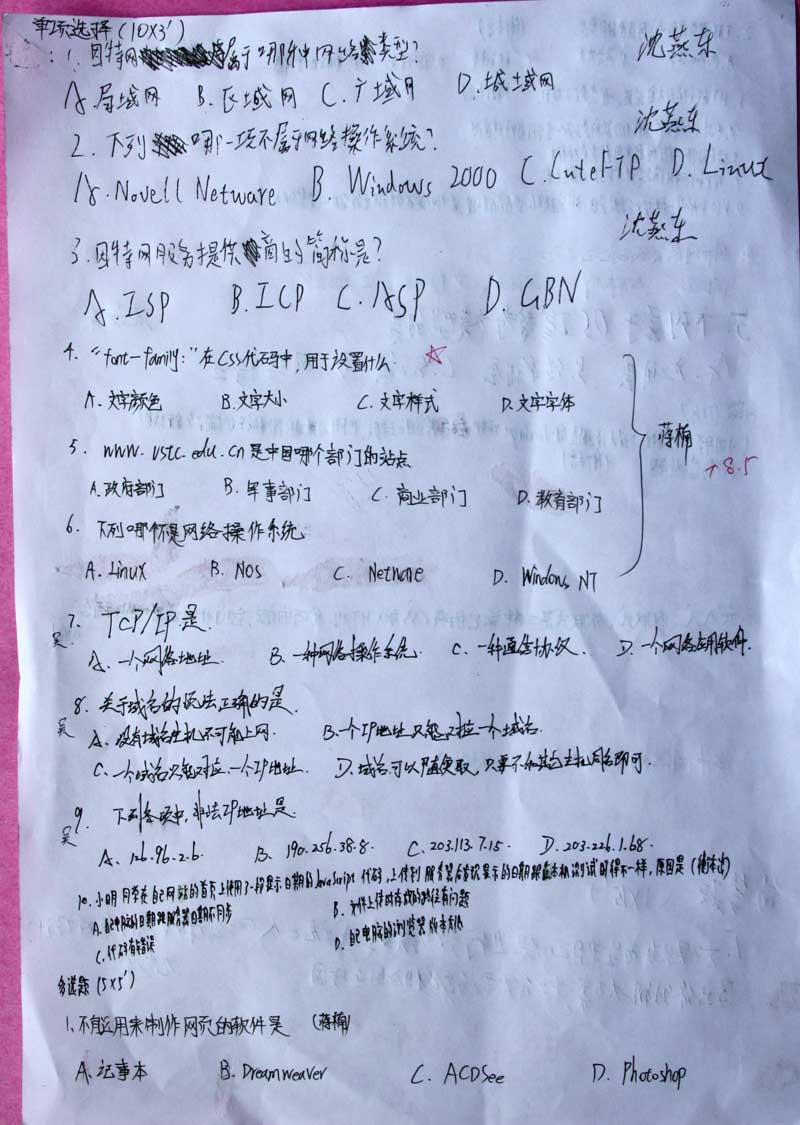 单项选择(10×3′)
1. 因特网属于哪种网络类型? 沈燕东
A.局域网 B.区域网 C.广域网 D.城域网
2. 下列哪一项不属于网络操作系统? 沈燕东
A.Novell Netware B.Windows 2000 C.CuteFTP D.Linux
3.因特网服务提供商的简称是? 沈燕东
A.ISP B.ICP C.ASP D.GBN
4. “font-family:”在CSS代码中,用于设置什么 ☆
A.文字颜色 B.文字大小 C.文字样式 D.文字字体
蒋楠
5. www.ustc.edu.cn是中国哪个部门的站点
+8.5
A.政府部门 B.军事部门 C.商业部门 D.教育部门
6. 下列哪个不是网络操作系统
A.Linux B.Nos C.Netware D.Windows NT
吴 7. TCP/IP是.
A.一个网络地址. B.一种网络操作系统. C.一种通信协议. D.一个网络应用软件.
吴 8.关于域名的说法正确的是.
A.没有域名主机不可能上网. B.一个IP地址只能对应一个域名.
C.一个域名只能对应一个IP地址. D.域名可以随便取,只要不和其它主机同名即可.
吴 9. 下列各项中,非法IP地址是.
A.126.96.2.6. B.190.256.38.8. C.203.113.7.15. D.203.226.1.68.
10.小明同学在自己网站的首页上使用了一段显示日期的JavaScript代码,上传到服务器后首页显示的日期跟在本机测试时得不一样,原因是
A.自己电脑的日期跟服务器日期不同步 B.文件上传时存放的路径有问题
C.代码有错误 D.自己电脑的浏览器版本太低
多选题(5×5′)
1.不能运用来制作网页的软件是 (蒋楠)
A.记事本 B.Dreamweaver C.ACDSee D.Photoshop